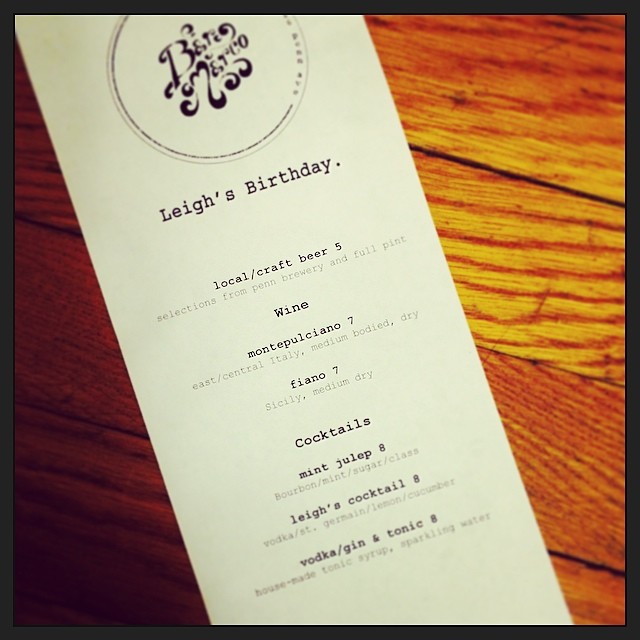 Bar Marco
Leigh's Birthday.
local/craft beer 5
selections from penn brewery and full pint
Wine
montepulciano 7
east/central Italy, medium bodied, dry
fiano 7
Sicily, medium dry
Cocktails
mint julep 8
Bourbon/mint/sugar/class
leigh's cocktail 8
vodka/st. germain/lemon/cucumber
vodka/gin & tonic 8
house-made tonic syrup, sparkling water